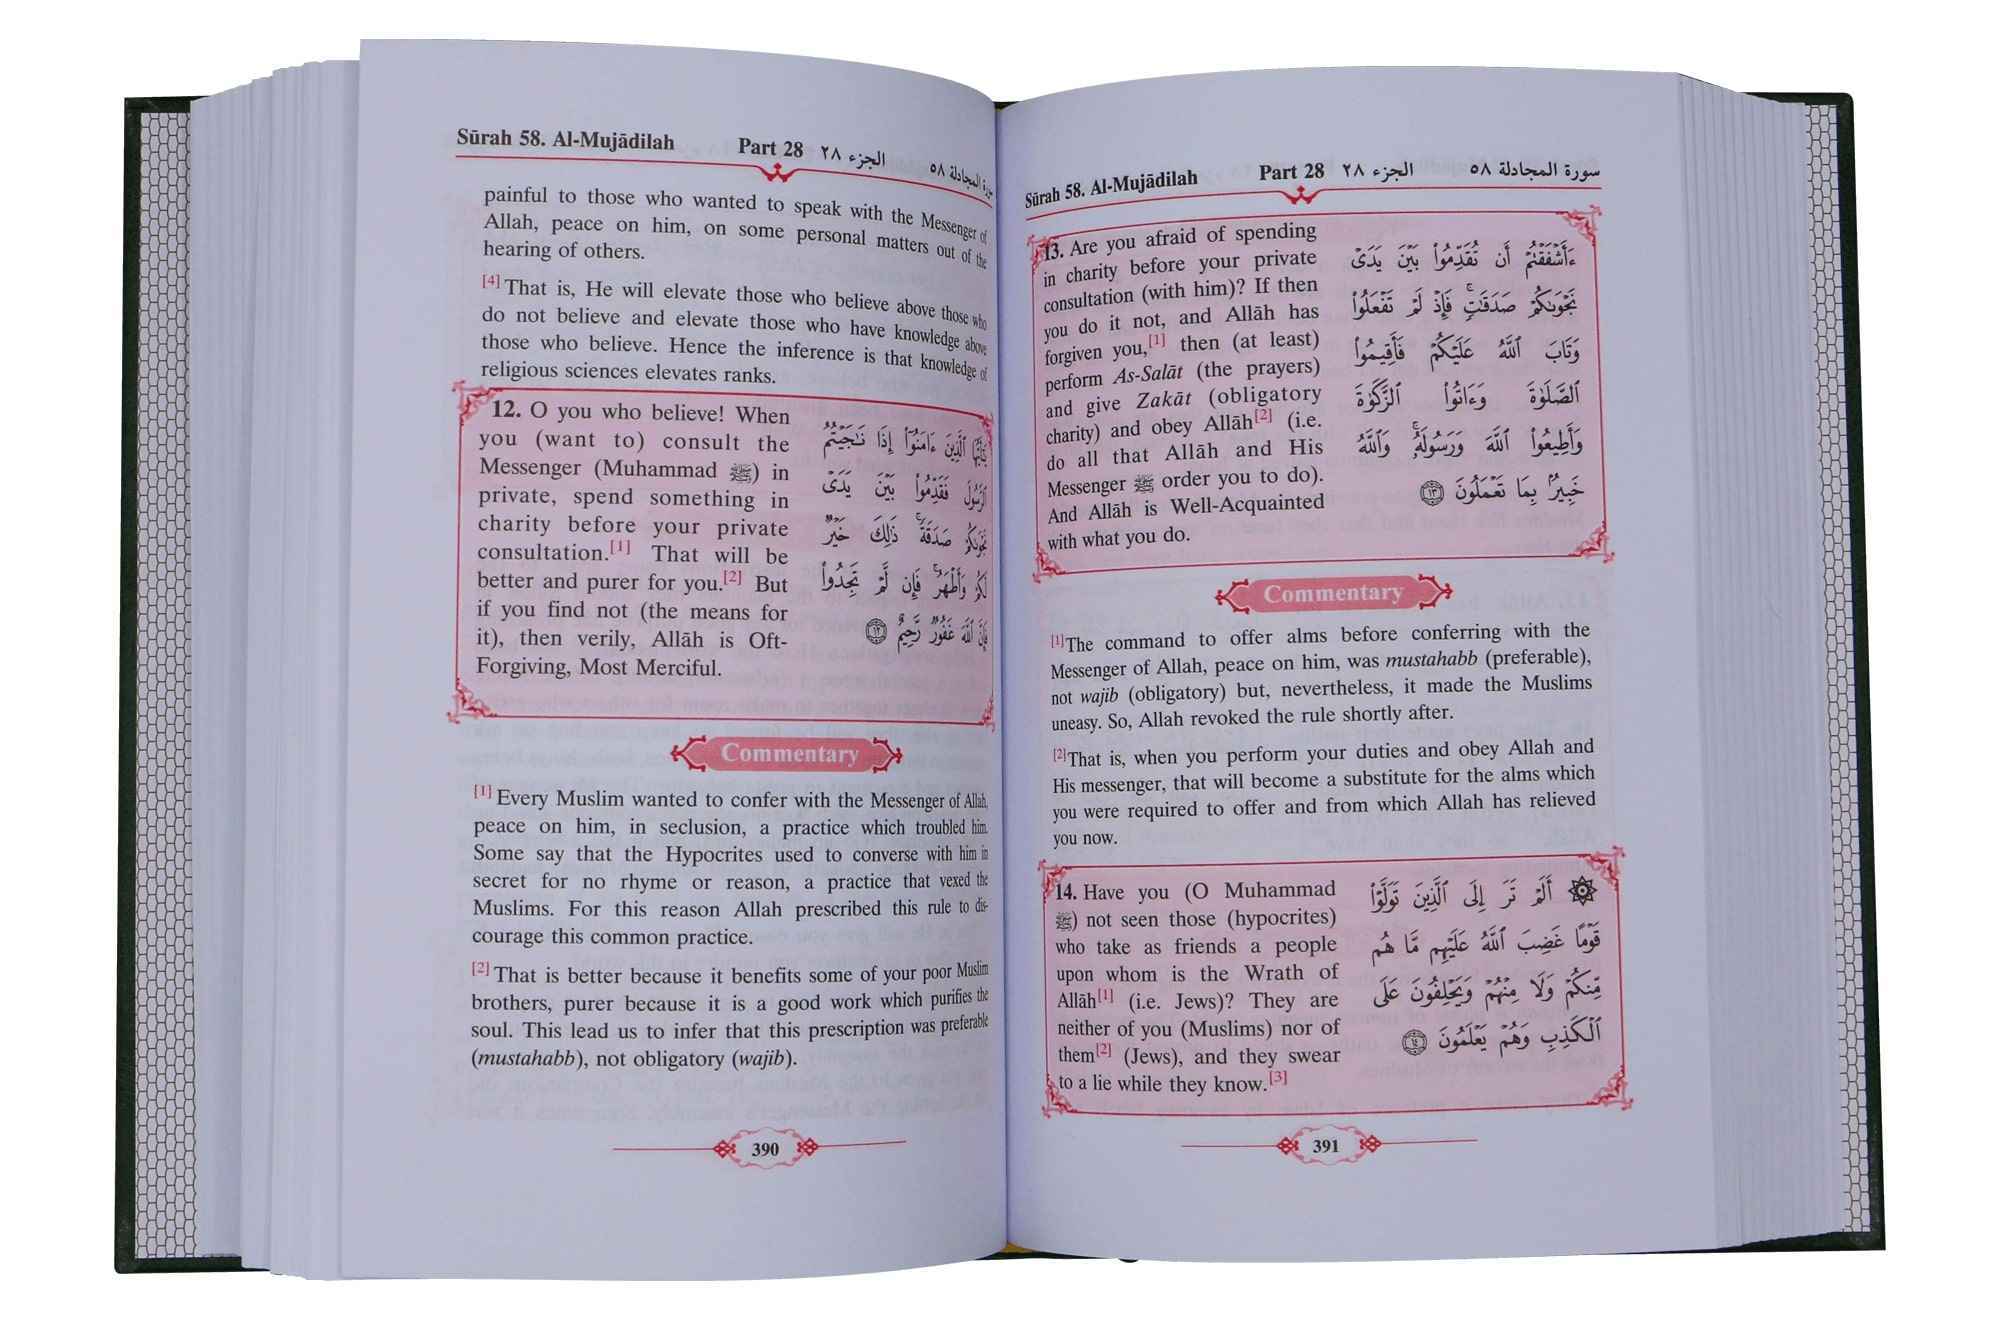 Sūrah 58. Al-Mujādilah Part 28 الجزء ٢٨ سورة المجادلة ٥٨
painful to those who wanted to speak with the Messenger of
Allah, peace on him, on some personal matters out of the
hearing of others.
[4] That is, He will elevate those who believe above those who
do not believe and elevate those who have knowledge above
those who believe. Hence the inference is that knowledge of
religious sciences elevates ranks.
12. O you who believe! When
you (want to) consult the
Messenger (Muhammad ﷺ) in
private, spend something in
charity before your private
consultation.[1] That will be
better and purer for you.[2] But
if you find not (the means for
it), then verily, Allāh is Oft-
Forgiving, Most Merciful.
يَٰٓأَيُّهَا ٱلَّذِينَ ءَامَنُوٓا۟ إِذَا نَٰجَيْتُمُ
ٱلرَّسُولَ فَقَدِّمُوا۟ بَيْنَ يَدَىْ
نَجْوَىٰكُمْ صَدَقَةً ۚ ذَٰلِكَ خَيْرٌ
لَّكُمْ وَأَطْهَرُ ۚ فَإِن لَّمْ تَجِدُوا۟
فَإِنَّ ٱللَّهَ غَفُورٌ رَّحِيمٌ ١٢
Commentary
[1] Every Muslim wanted to confer with the Messenger of Allah,
peace on him, in seclusion, a practice which troubled him.
Some say that the Hypocrites used to converse with him in
secret for no rhyme or reason, a practice that vexed the
Muslims. For this reason Allah prescribed this rule to dis-
courage this common practice.
[2] That is better because it benefits some of your poor Muslim
brothers, purer because it is a good work which purifies the
soul. This lead us to infer that this prescription was preferable
(mustahabb), not obligatory (wajib).
390
Sūrah 58. Al-Mujādilah Part 28 الجزء ٢٨ سورة المجادلة ٥٨
13. Are you afraid of spending
in charity before your private
consultation (with him)? If then
you do it not, and Allāh has
forgiven you,[1] then (at least)
perform As-Salāt (the prayers)
and give Zakāt (obligatory
charity) and obey Allāh[2] (i.e.
do all that Allāh and His
Messenger ﷺ order you to do).
And Allāh is Well-Acquainted
with what you do.
ءَأَشْفَقْتُمْ أَن تُقَدِّمُوا۟ بَيْنَ يَدَىْ
نَجْوَىٰكُمْ صَدَقَٰتٍ ۚ فَإِذْ لَمْ تَفْعَلُوا۟
وَتَابَ ٱللَّهُ عَلَيْكُمْ فَأَقِيمُوا۟
ٱلصَّلَوٰةَ وَءَاتُوا۟ ٱلزَّكَوٰةَ
وَأَطِيعُوا۟ ٱللَّهَ وَرَسُولَهُۥ ۚ وَٱللَّهُ
خَبِيرٌۢ بِمَا تَعْمَلُونَ ١٣
Commentary
[1]The command to offer alms before conferring with the
Messenger of Allah, peace on him, was mustahabb (preferable),
not wajib (obligatory) but, nevertheless, it made the Muslims
uneasy. So, Allah revoked the rule shortly after.
[2]That is, when you perform your duties and obey Allah and
His messenger, that will become a substitute for the alms which
you were required to offer and from which Allah has relieved
you now.
14. Have you (O Muhammad
ﷺ) not seen those (hypocrites)
who take as friends a people
upon whom is the Wrath of
Allāh[1] (i.e. Jews)? They are
neither of you (Muslims) nor of
them[2] (Jews), and they swear
to a lie while they know.[3]
۞ أَلَمْ تَرَ إِلَى ٱلَّذِينَ تَوَلَّوْا۟
قَوْمًا غَضِبَ ٱللَّهُ عَلَيْهِم مَّا هُم
مِّنكُمْ وَلَا مِنْهُمْ وَيَحْلِفُونَ عَلَى
ٱلْكَذِبِ وَهُمْ يَعْلَمُونَ ١٤
391